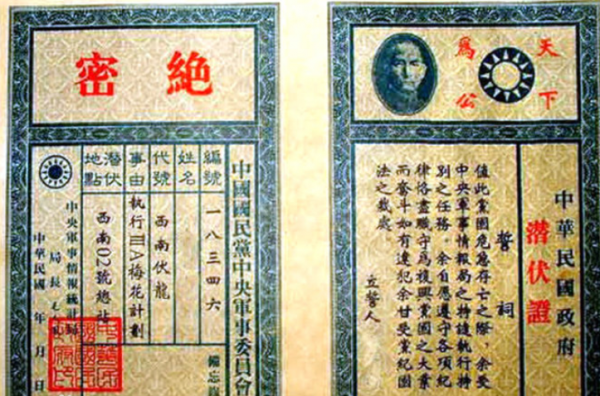 天下
爲公
中華民國政府
潛伏證
誓詞
值此黨國危急存亡之際,余受
中央軍事情報局之特遣執行特
別之任務。余自愿遵守各項紀
律恪盡職守為復興黨國之大業
而奮斗如有違紀余甘受黨紀國
法之裁處。
立誓人
絕密
中國國民黨中央軍事委員會
備忘
編號 一八三四六
姓名
代號 西南伏龍
事由 執行ⅢA梅花計劃
潛伏地點 西南02號總站
中央軍事情報統計局
局長
中華民國 年 月 日